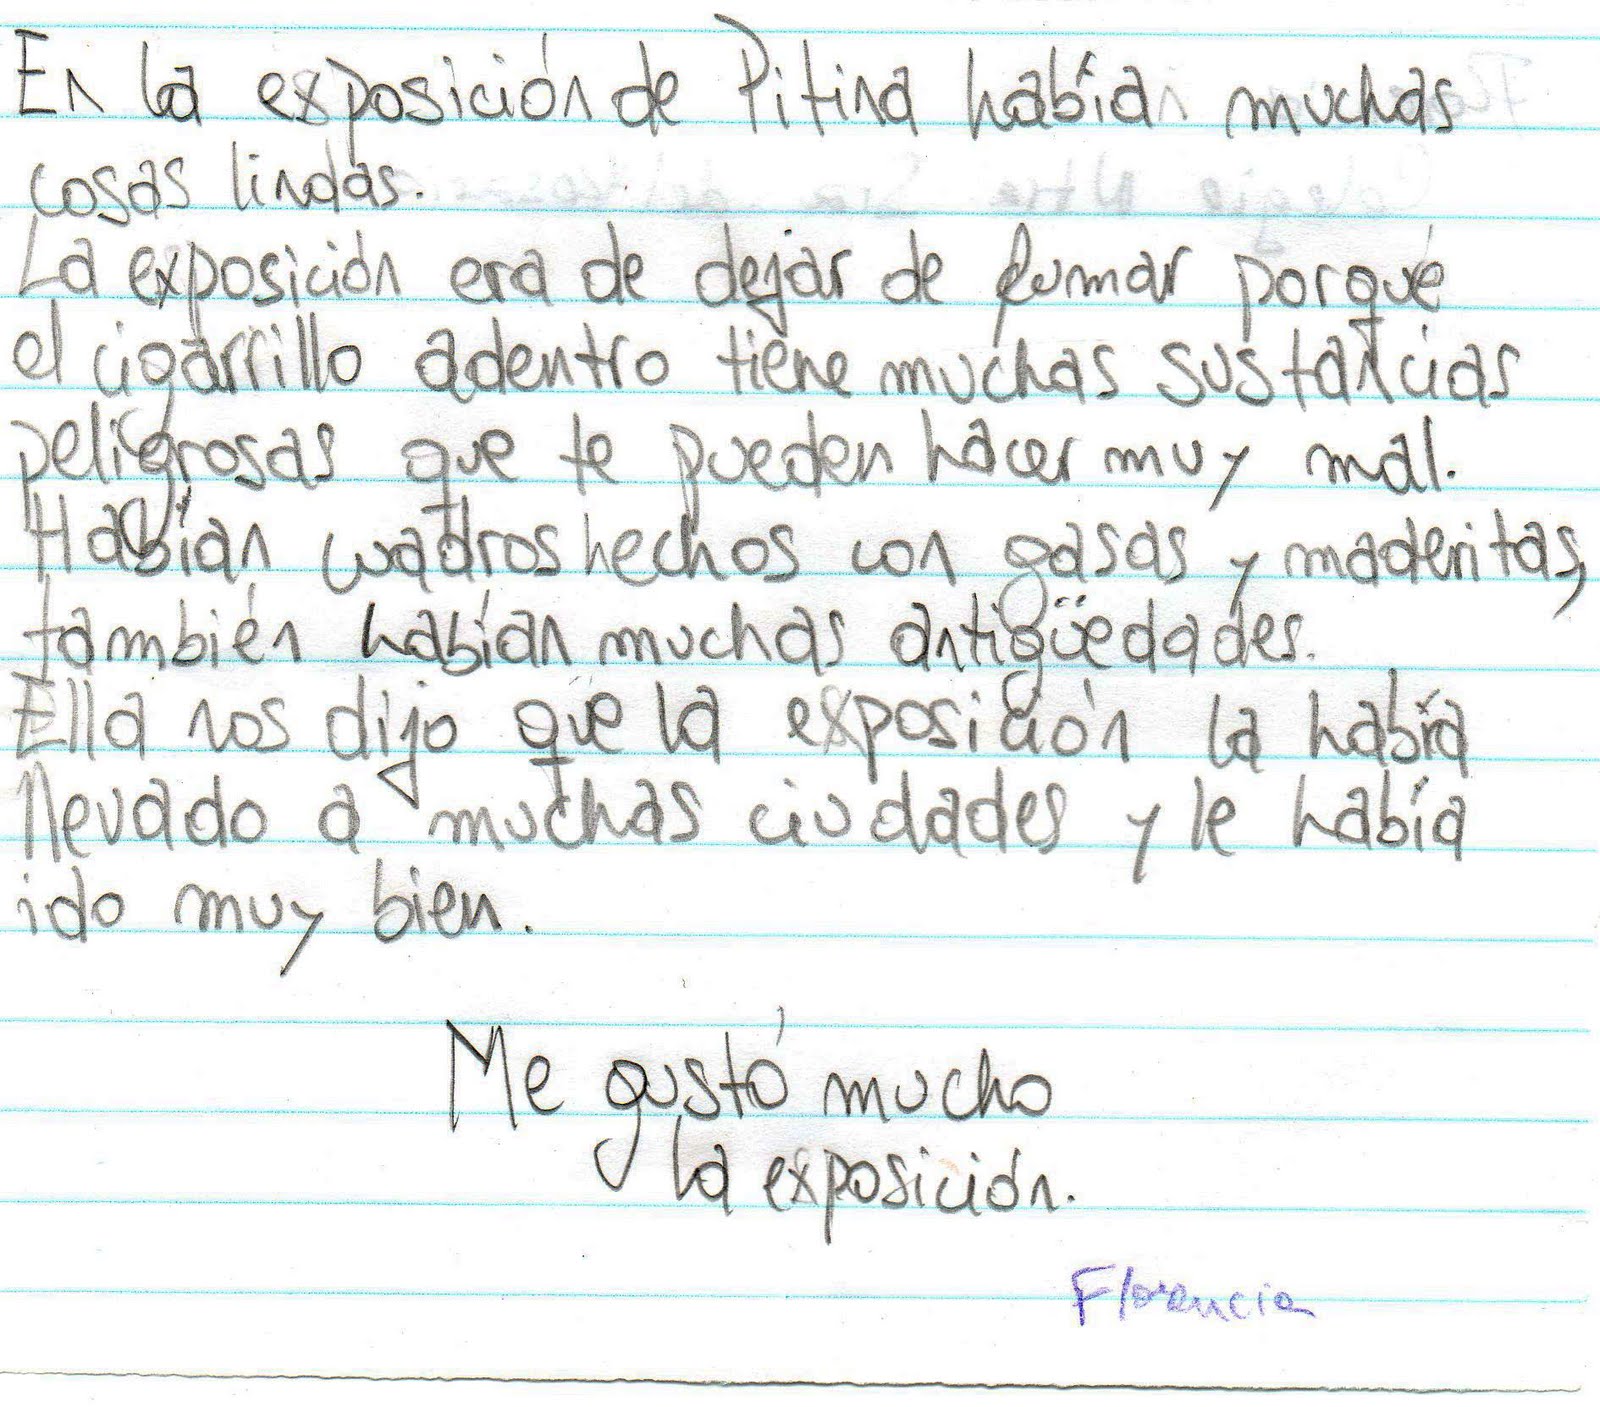 En la exposición de Pitina habían muchas
cosas lindas.
La exposición era de dejar de fumar porqué
el cigarrillo adentro tiene muchas sustancias
peligrosas que te pueden hacer muy mal.
Habían cuadros hechos con gasas y maderitas,
también habían muchas antigüedades.
Ella nos dijo que la exposición la había
llevado a muchas ciudades y le había
ido muy bien.
Me gustó mucho
la exposición.
Florencia